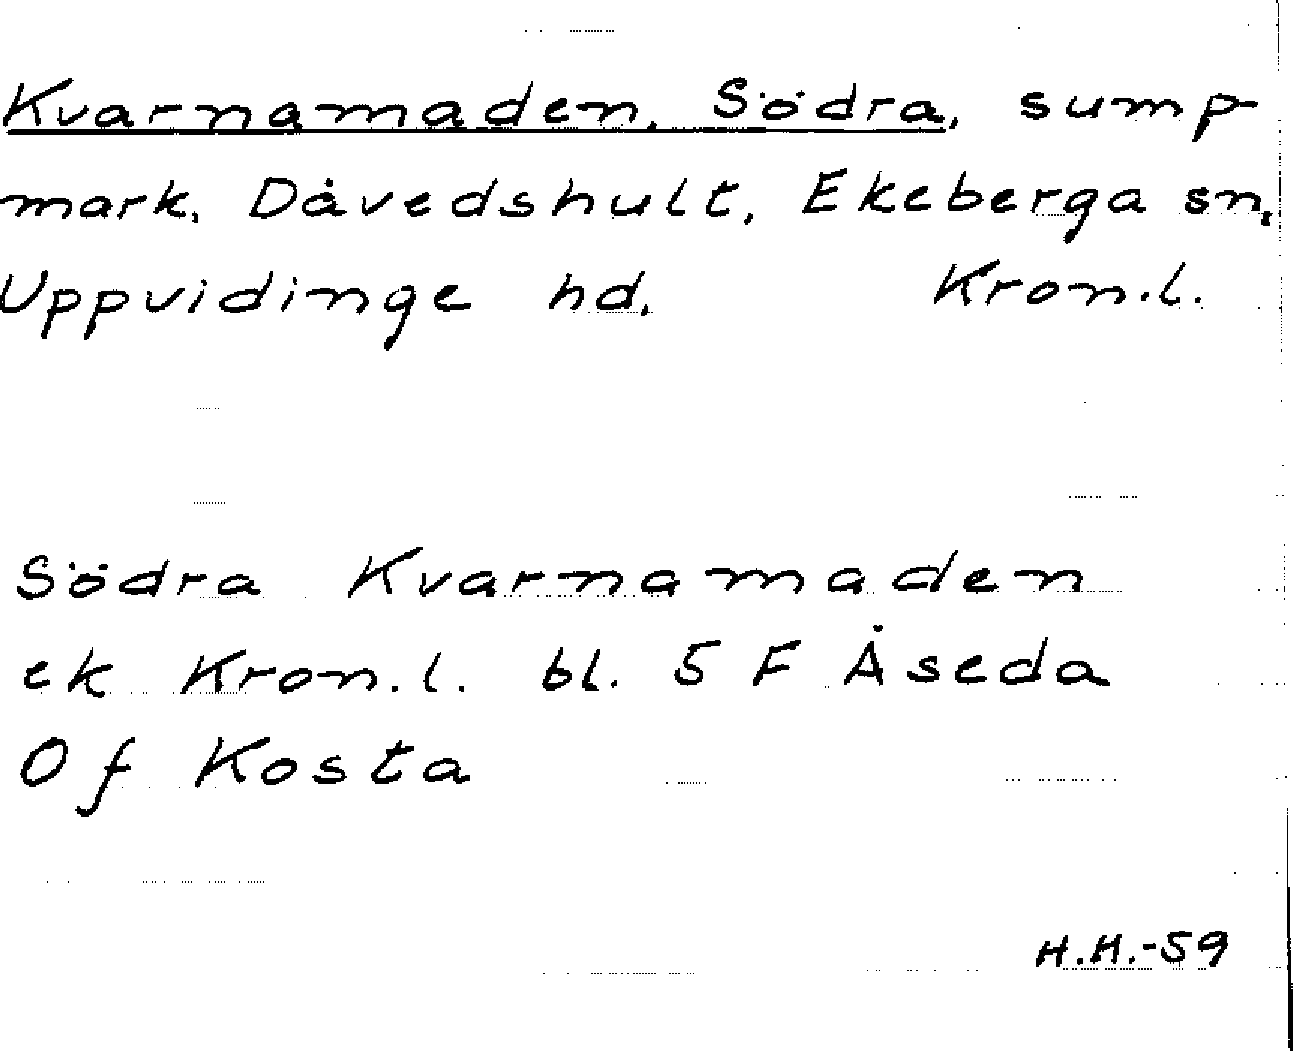 Kvarnamaden, Södra, sump
mark, Dåvedshult, Ekeberga sn,
Uppvidinge hd, Kron.l.
Södra Kvarnamaden
ek Kron.l. bl. 5 F Åseda
Of Kosta
H.H.-59